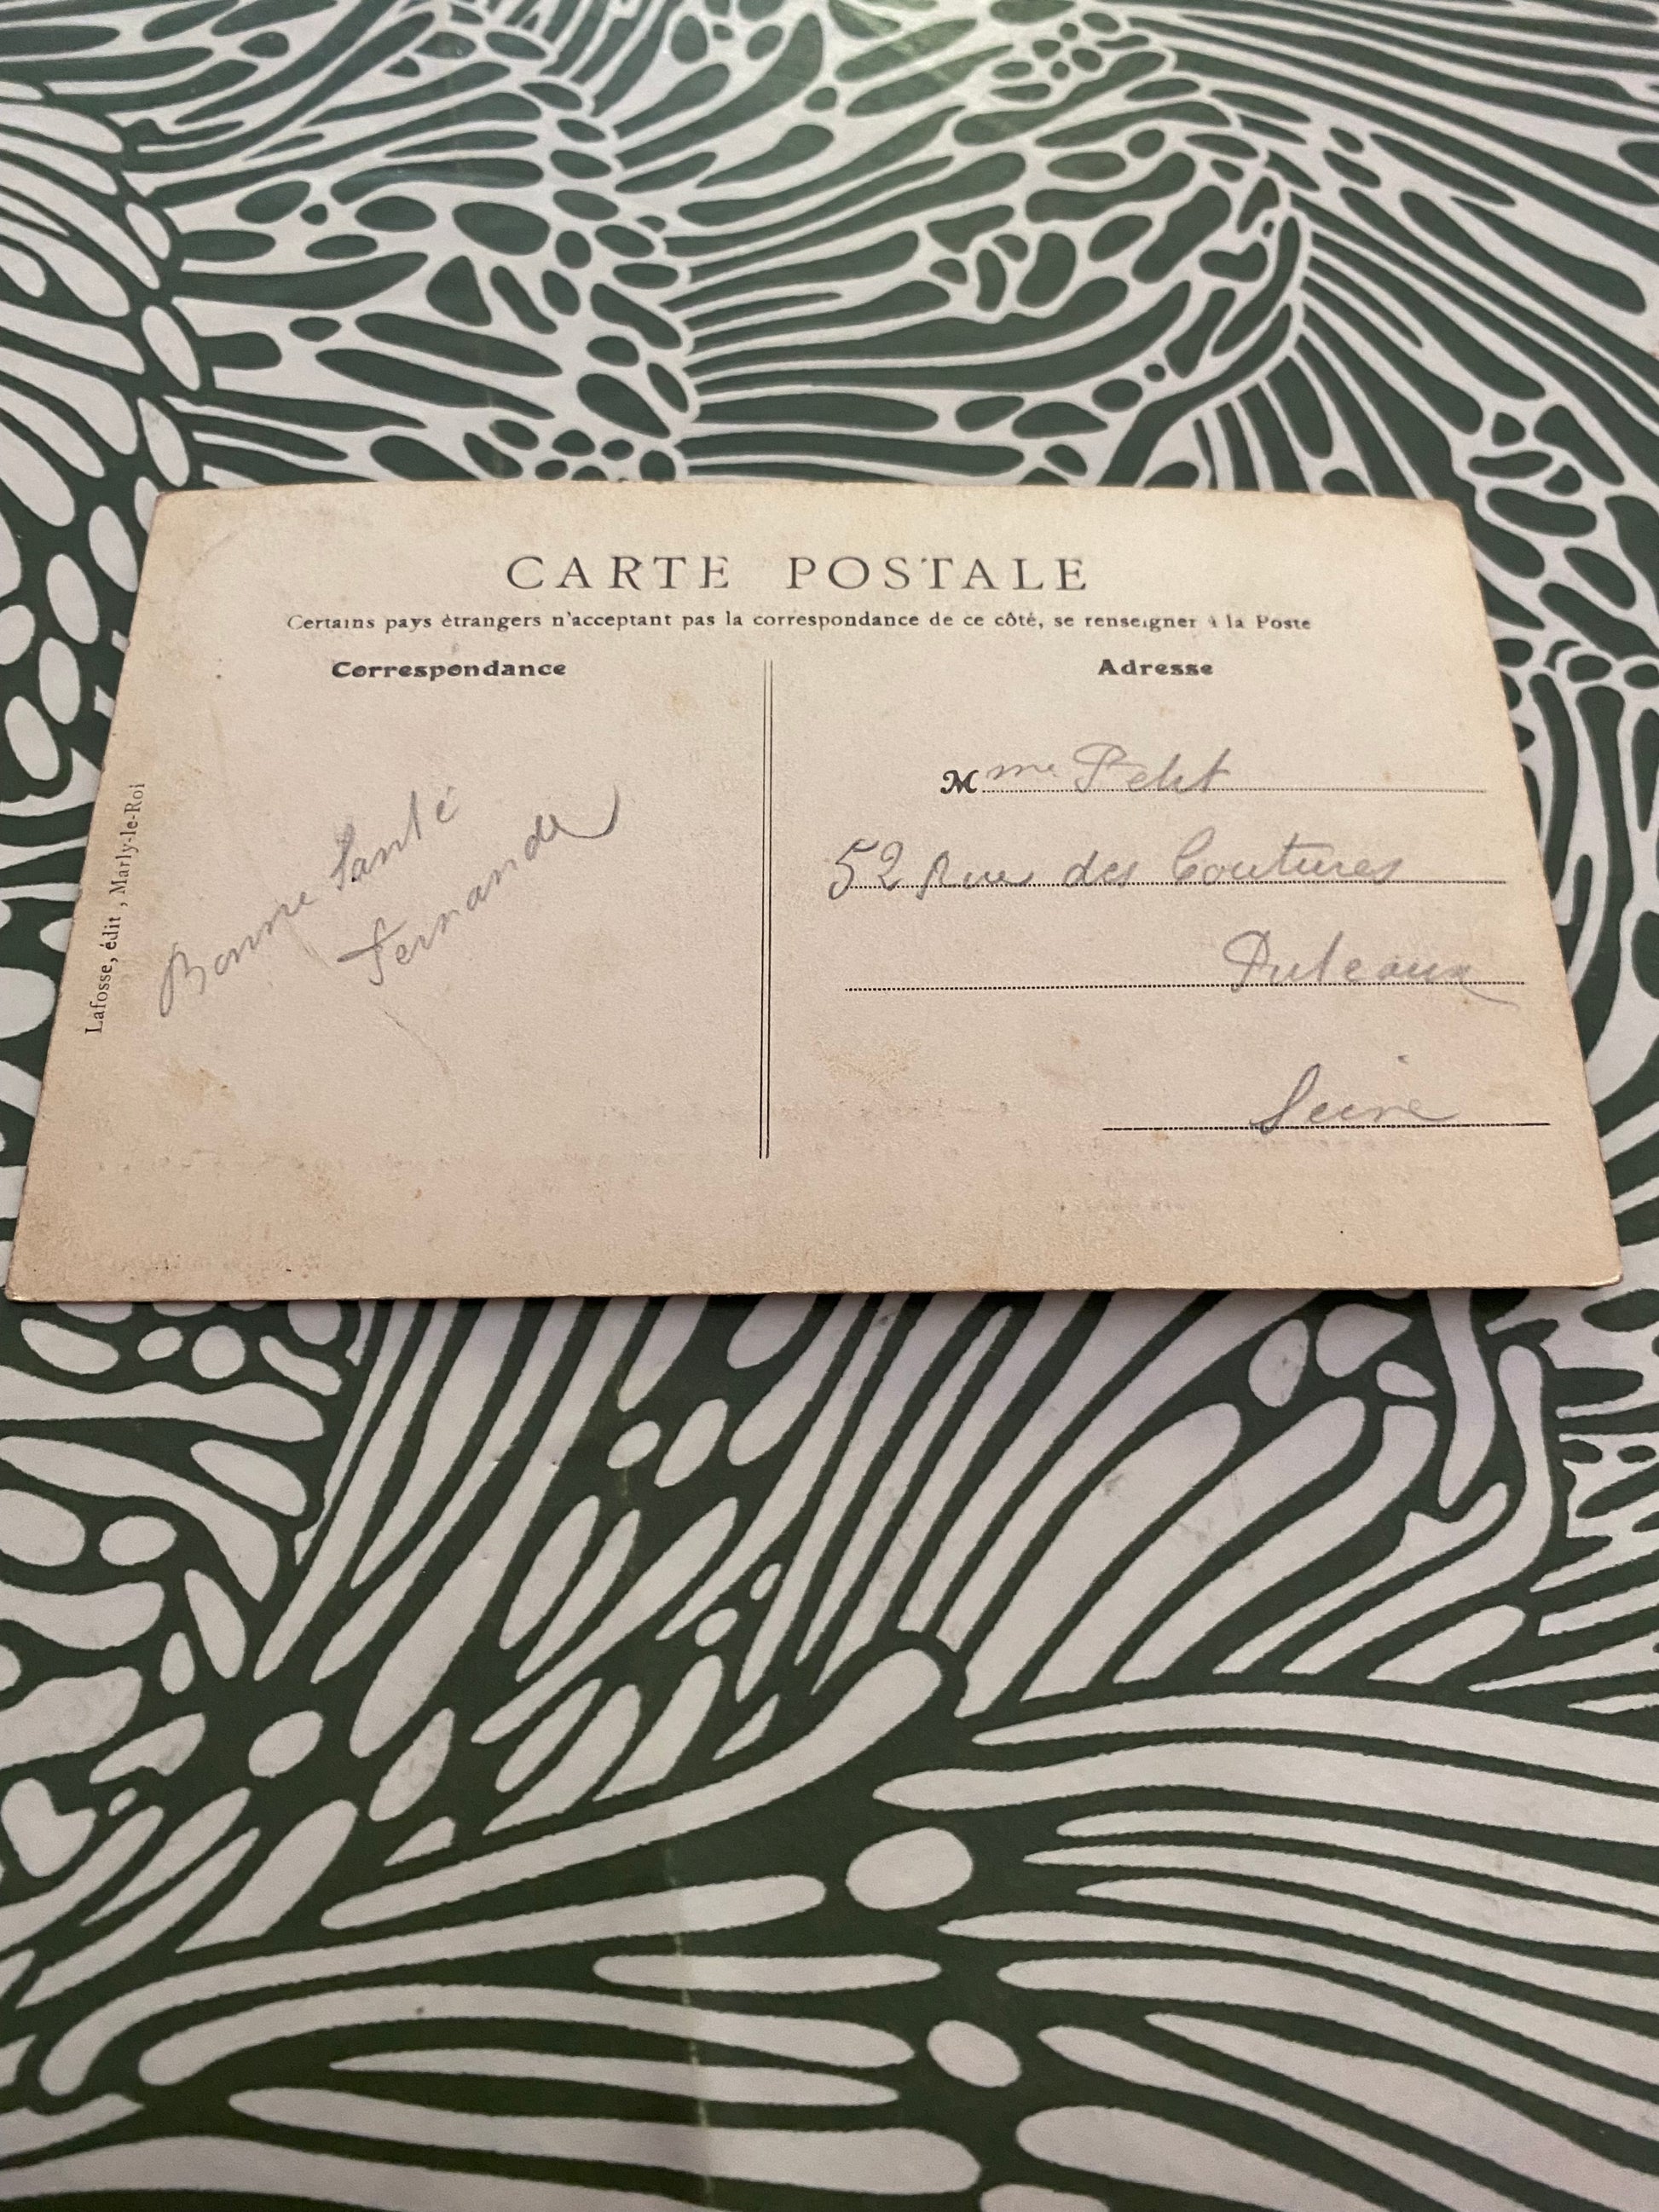 CARTE POSTALE
Certains pays étrangers n'acceptant pas la correspondance de ce côté, se renseigner à la Poste
Correspondance
Bonne Santé
Fernande
Lafosse, édit, Marly-le-Roi
Adresse
Mme Petit
52 Rue des Coutures
Puteaux
Seine